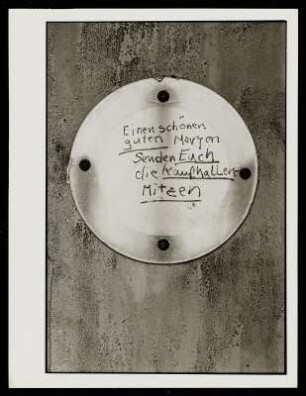 Einen schönen
guten Morgen
Senden Euch
die Kaufhallen
Mitzen